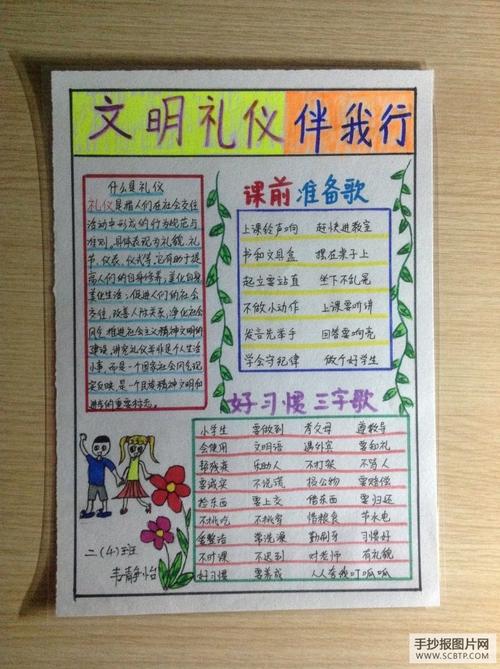 文明礼仪伴我行
什么是礼仪
礼仪是指人们在社会交往
活动中形成的行为规范与
准则。具体表现为礼貌、礼
节、仪表、仪式等。它有助于提
高人们的自身修养，美化自身
美化生活，促进人们的社会
交往，改善人际关系，净化社会
风气，推进社会主义精神文明的
建设，讲究礼仪并非是个人生活
小事，而是一个国家社会风气现
实反映，是一个民族精神文明和
进步的重要标志。
课前准备歌
上课铃声响 赶快进教室
书和文具盒 摆在桌子上
起立要站直 坐下不乱晃
不做小动作 上课要听讲
发言先举手 回答要响亮
学会守纪律 做个好学生
好习惯三字歌
小学生 要做到 孝父母 遵教导
会使用 文明语 遇外宾 要和礼
帮残疾 乐助人 不打架 不骂人
要诚实 不说谎 损公物 要赔偿
捡东西 要上交 借东西 要归还
不挑吃 不挑穿 惜粮食 节水电
会整洁 常洗澡 勤刷牙 习惯好
不旷课 不迟到 对老师 有礼貌
好习惯 要养成 人人夸我叮呱呱
二（4）班
韦静怡
手抄报图片网
WWW.SCBTP.COM